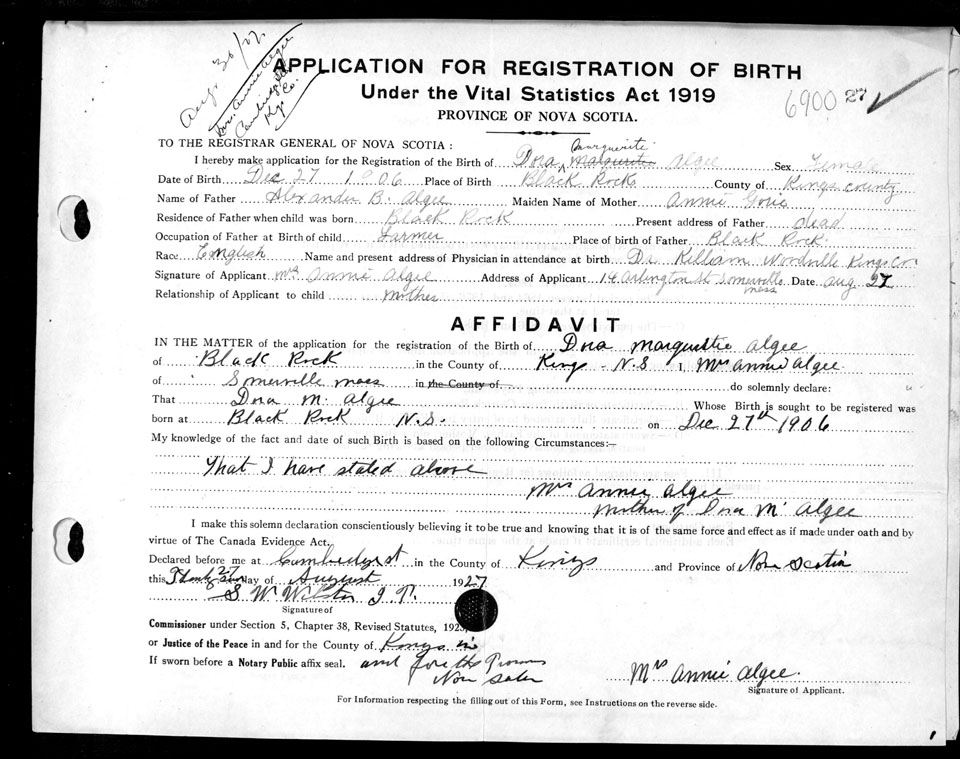 Aug 30/27.
Mrs. Annie Algee
Cambridge Stn
Kgs Co.
APPLICATION FOR REGISTRATION OF BIRTH
Under the Vital Statistics Act 1919
PROVINCE OF NOVA SCOTIA.
6900 27
TO THE REGISTRAR GENERAL OF NOVA SCOTIA:
Marguerite
I hereby make application for the Registration of the Birth of Dora Algee Sex Female
Date of Birth Dec 27 1906 Place of Birth Black Rock County of Kings County
Name of Father Alexander B. Algee Maiden Name of Mother Annie
Residence of Father when child was born Black Rock Present address of Father dead
Occupation of Father at Birth of child Farmer Place of birth of Father Black Rock.
Race English Name and present address of Physician in attendance at birth Dr Killiam Woodville Kings Co
Signature of Applicant Mrs Annie Algee Address of Applicant 14 Arlington St Somerville Mass Date Aug 27
Relationship of Applicant to child mother
AFFIDAVIT
IN THE MATTER of the application for the registration of the Birth of Dora Marguerite Algee
of Black Rock in the County of Kings - N.S I, Mrs Annie Algee.
of Somerville Mass in the County of do solemnly declare:
That Dora M. Algee Whose Birth is sought to be registered was
born at Black Rock N.S. on Dec 27th 1906
My knowledge of the fact and date of such Birth is based on the following Circumstances:—
That I have stated above
Mrs Annie Algee
Mother of Dora M Algee
I make this solemn declaration conscientiously believing it to be true and knowing that it is of the same force and effect as if made under oath and by
virtue of The Canada Evidence Act.
Declared before me at in the County of Kings and Province of Nova Scotia
this day of August 1927
S W J. P.
Signature of
Commissioner under Section 5, Chapter 38, Revised Statutes, 1923,
or Justice of the Peace in and for the County of Kings in
If sworn before a Notary Public affix seal. and for the
Mrs Annie Algee.
Signature of Applicant.
For Information respecting the filling out of this Form, see Instructions on the reverse side.